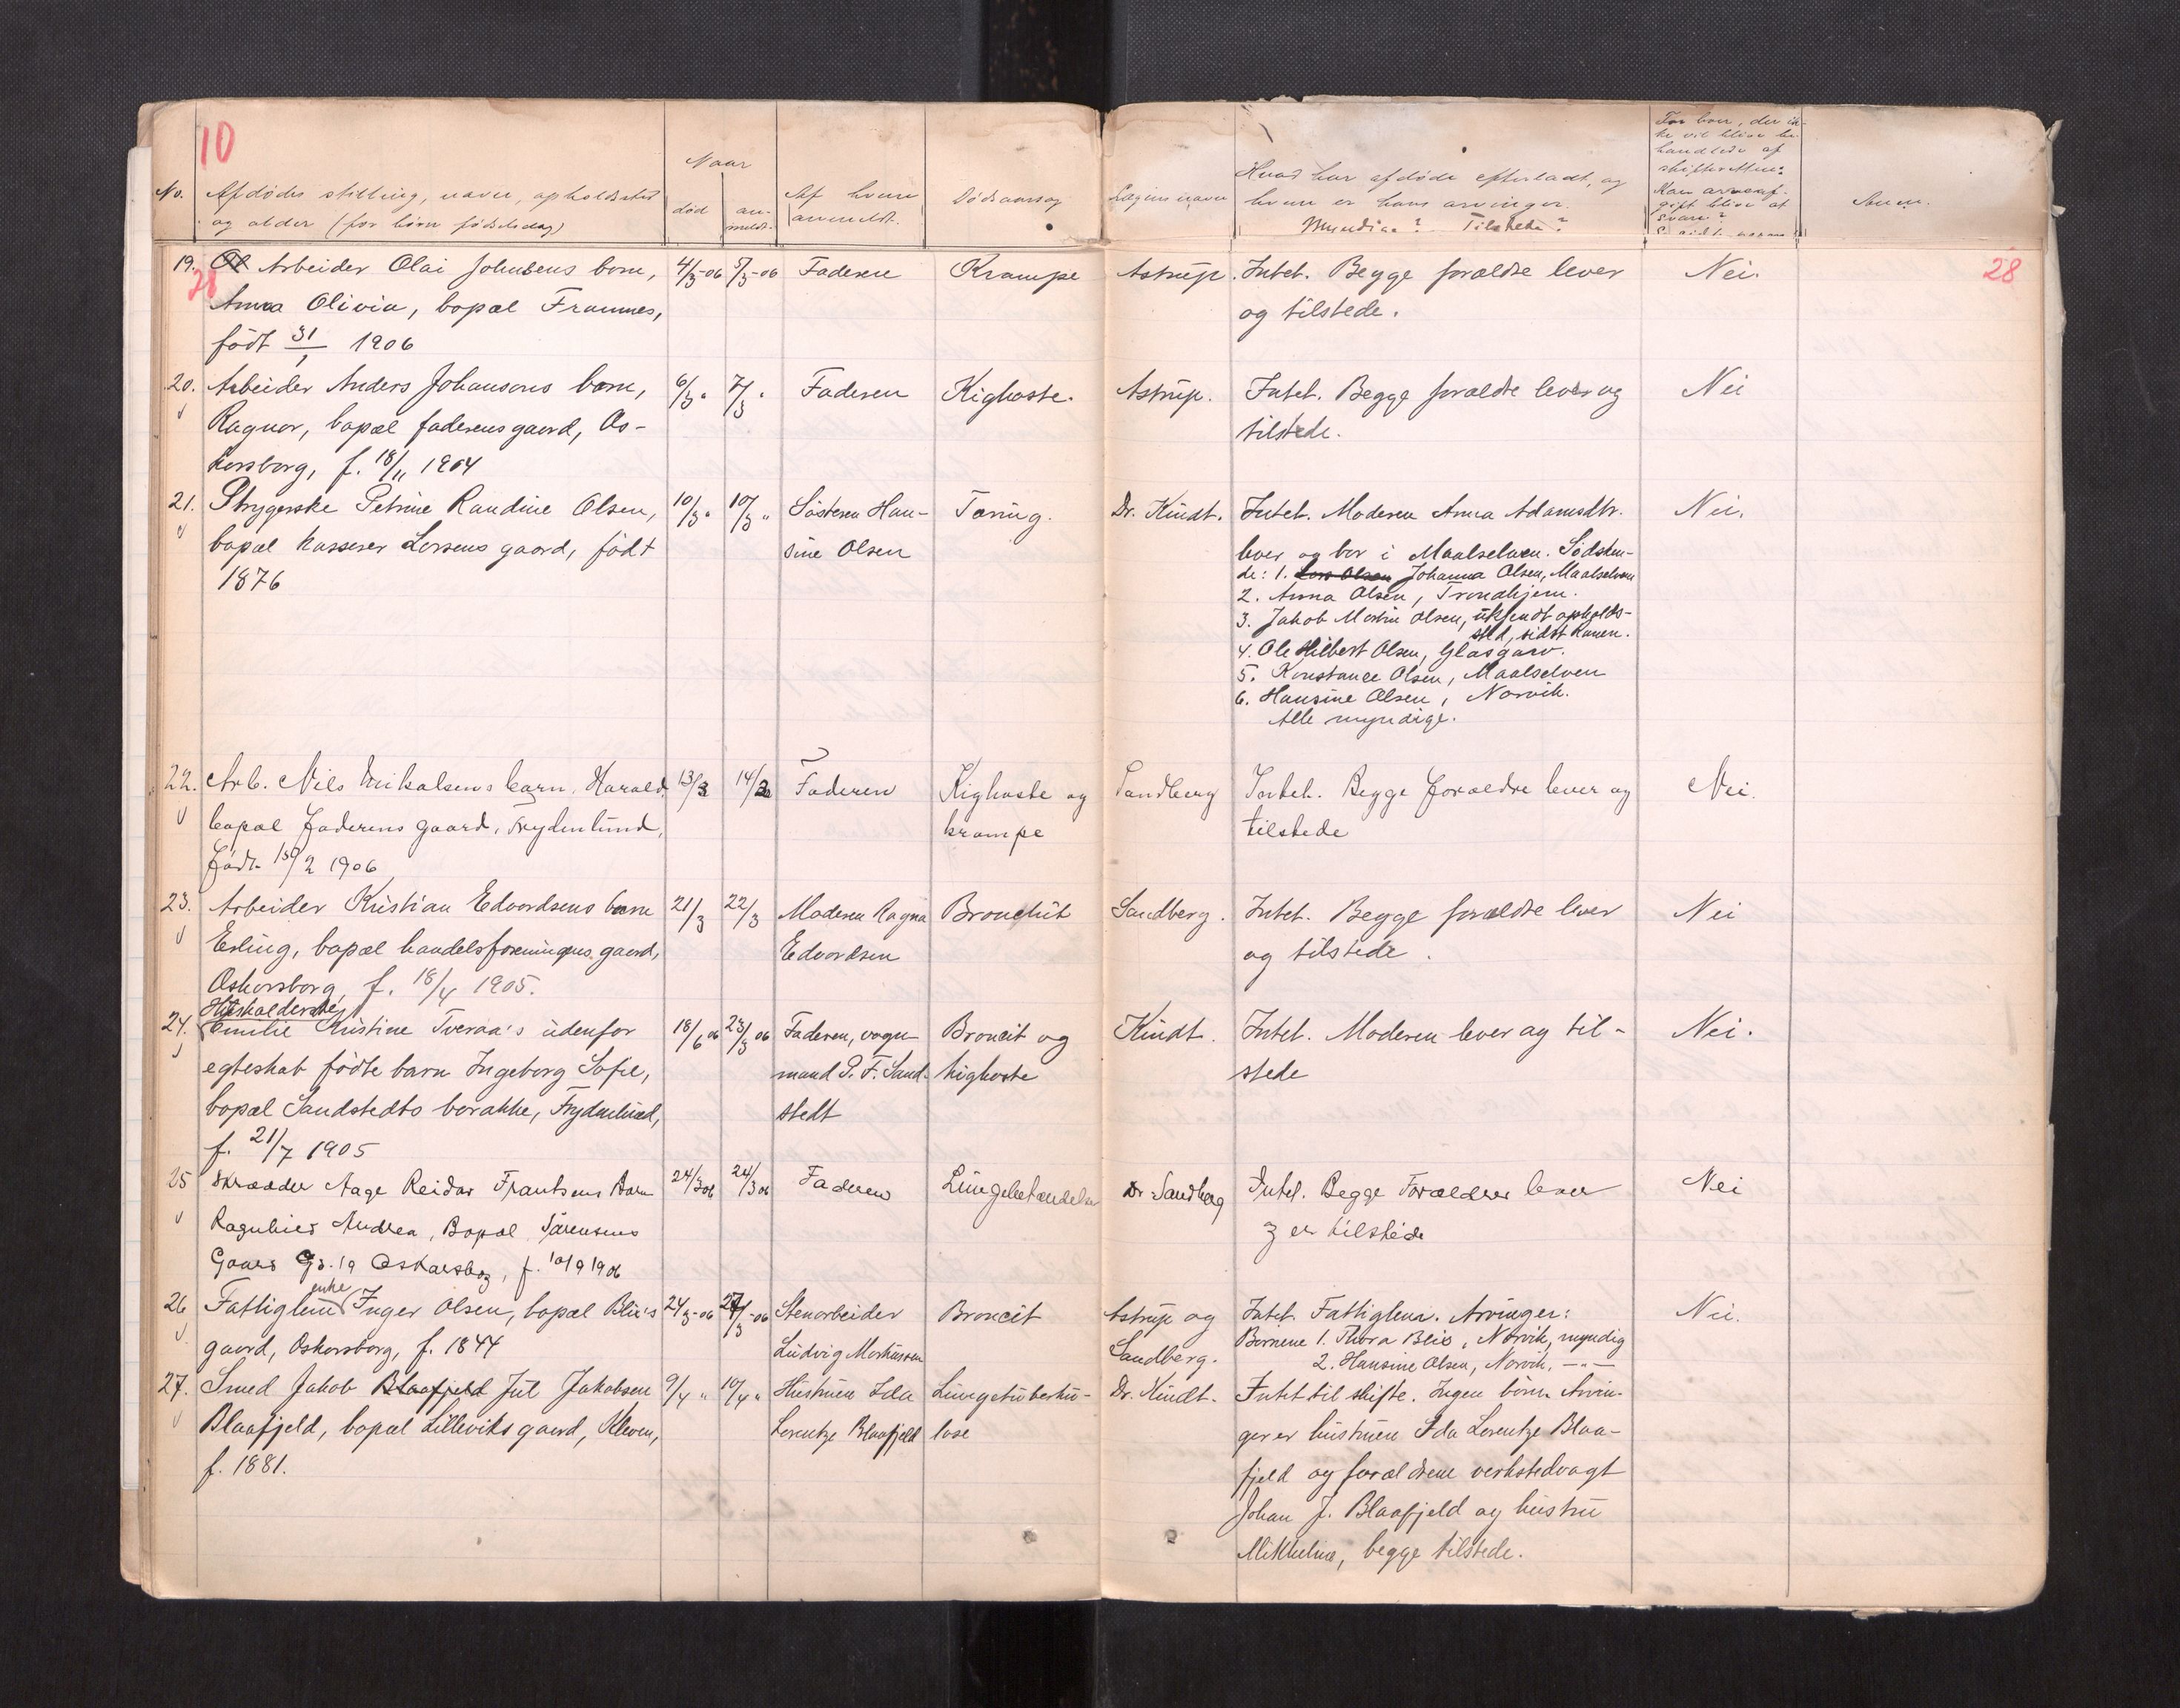 10
No.
Afdødes stilling, navn, opholdssted
og alder (for børn fødselsdag)
Naar
død
an-
meldt.
Af hvem
anmeldt.
Dødsaarsag
Lægens navn
Hvad har afdøde efterladt, og
hvem er hans arvinger.
Myndige? Tilstede?
For boer, der ik-
ke vil blive be-
handlede af
skifteretten:
Kan arveaf-
gift blive at
svare?
28
19. Arbeider Olai Johnsens barn, 4/3-06 5/3-06 Faderen Krampe Astrup. Intet. Begge forældre lever Nei. 28
Anna Olivia, bopæl Framnes, og tilstede.
født 31/1 1906
20. Arbeider Anders Johansons barn, 6/3 " 7/3 " Faderen Kighoste. Astrup. Intet. Begge forældre lever og Nei
Ragnar, bopæl faderens gaard, Os- tilstede.
karsborg, f. 18/11 1904
21. Strygerske Petrine Randine Olsen, 10/3 " 10/3 " Søsteren Han- Tæring. Dr. Kindt. Intet. Moderen Anna Adamsdtr. Nei.
bopæl kasserer Larsens gaard, født sine Olsen lever og bor i Maalselven. Sødsken-
1876 de: 1. Lars Olsen Johanna Olsen, Maalselven
2. Anna Olsen, Trondhjem.
3. Jakob Martin Olsen, ukjendt opholds-
sted, sidst Kanen.
4. Ole Hilbert Olsen, Glasgow.
5. Konstance Olsen, Maalselven
6. Hansine Olsen, Narvik.
Alle myndige.
22. Arb. Nils Mikalsens barn, Harald, 13/3 14/3 Faderen Kighoste og Sandberg Intet. Begge forældre lever og Nei.
bopæl faderens gaard, Frydenlund, krampe tilstede
født 2 1906
23. Arbeider Kristian Edvardsens barn 21/3 22/3 Moderen Ragna Bronchit Sandberg. Intet. Begge forældre lever Nei
Erling, bopæl handelsforeningens gaard, Edvardsen og tilstede.
Oskarsborg, f. 18/4 1905.
Husholderske
24. Emilie Kristine Tveraa's udenfor 18/6 06 23/3 06 Faderen, vogn- Broncit og Kindt. Intet. Moderen lever og til- Nei.
egteskab fødte barn Ingeborg Sofie, mand P. F. Sand- kighoste stede
bopæl Sandstedts barakke, Frydenlund, stedt
f. 21/7 1905
25 Skrædder Aage Reidar Frantsens Barn 24/3 06 24/3 06 Faderen Lungebetændelse Dr Sandberg Intet. Begge Forældre lever Nei
Ragnhild Andrea, Bopæl Sørensens og er tilstede
Gaard Gd. 19 Oskarsborg, f. 10/9 1906
enke
26 Fattiglem Inger Olsen, bopæl Blix's 24/3-06 27/3-06 Stenarbeider Broncit Astrup og Intet. Fattiglem. Arvinger: Nei.
gaard, Oskarsborg, f. 1844 Ludvig Markussen Sandberg. Børnene 1. Thora Blix, Narvik, myndig
2. Hansine Olsen, Narvik, -"-
27. Smed Jakob Blaafjeld Jul Jakobsen 9/4 " 10/4 " Hustruen Ida Lungetuberku- Dr. Kindt. Intet til skifte. Ingen børn. Arvin-
Blaafjeld, bopæl Lilleviks gaard, Kleven, Lorentze Blaafjeld lose ger er hustruen Ida Lorentze Blaa-
f. 1881. fjeld og forældrene verkstedvagt
Johan J. Blaafjeld og hustru
Mikkeline, begge tilstede.